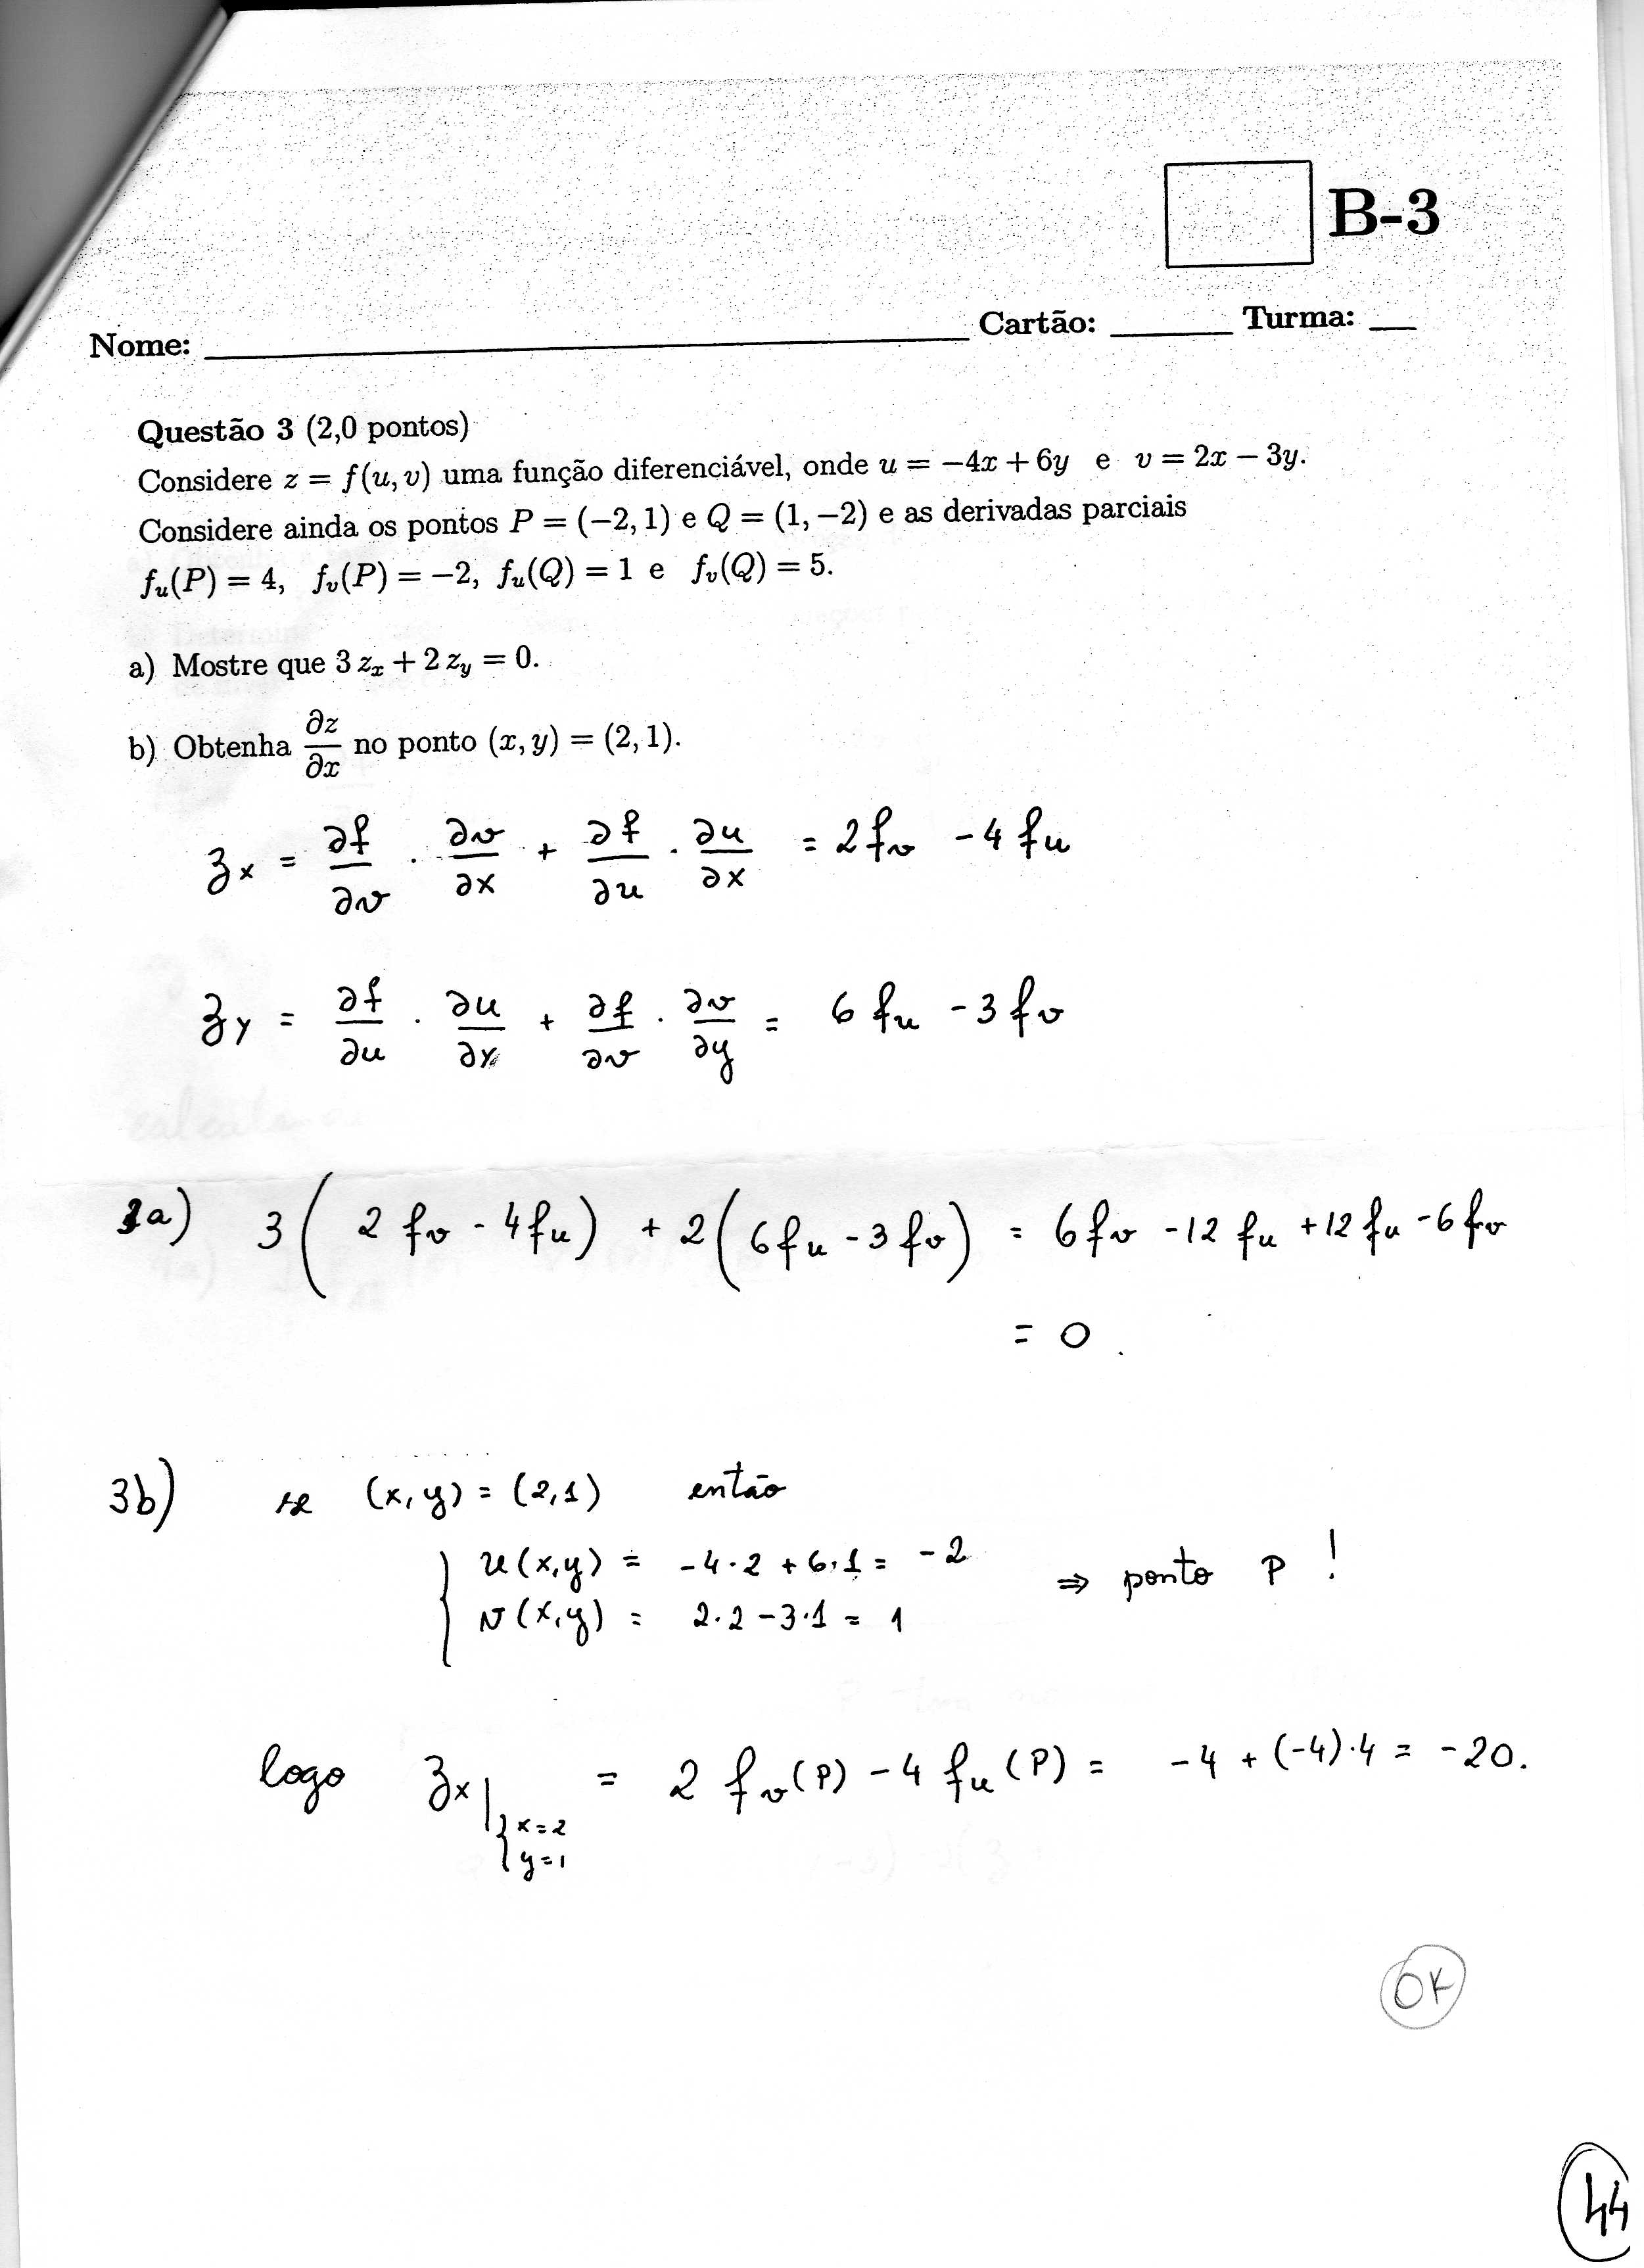 B-3
Nome: ____ Cartão: ____ Turma: ____
Questão 3 (2,0 pontos)
Considere z = f(u, v) uma função diferenciável, onde u = −4x + 6y e v = 2x − 3y.
Considere ainda os pontos P = (−2, 1) e Q = (1, −2) e as derivadas parciais
f_u(P) = 4, f_v(P) = −2, f_u(Q) = 1 e f_v(Q) = 5.
a) Mostre que 3 z_x + 2 z_y = 0.
b) Obtenha ∂z/∂x no ponto (x, y) = (2, 1).
z_x = ∂f/∂v · ∂v/∂x + ∂f/∂u · ∂u/∂x = 2f_v - 4f_u
z_y = ∂f/∂u · ∂u/∂y + ∂f/∂v · ∂v/∂y = 6 f_u - 3 f_v
3a) 3(2 f_v - 4f_u) + 2(6f_u - 3f_v) = 6f_v - 12 f_u + 12 f_u - 6 f_v
= 0.
3b) se (x,y) = (2,1) então
u(x,y) = -4·2 + 6·1 = -2
v(x,y) = 2·2 - 3·1 = 1 ⇒ ponto P !
logo z_x | { x=2 = 2 f_v(P) - 4 f_u(P) = -4 + (-4)·4 = -20.
y=1
OK
44